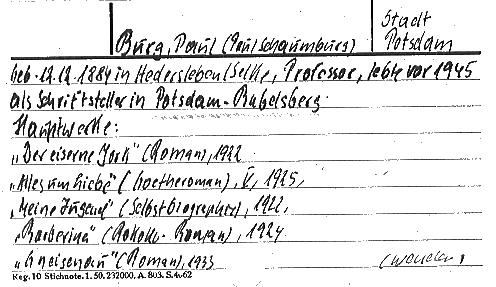 Stadt
Burg, Paul (Paul Schaumburg) Potsdam
geb. 12.12.1884 in Hedersleben/Selke, Professor, lebte vor 1945
als Schriftsteller in Potsdam-Babelsberg.
Hauptwerke:
„Der eiserne York" (Roman), 1922
„Alles um Liebe" (Goetheroman), V, 1925,
„Meine Jugend" (Selbstbiographie), 1922,
„Barberina" (Rokoko-Roman), 1924
„Gneisenau" (Roman), 1933
Reg. 10 Stichnote. 1. 50. 232000. A. 803. S. 4.-62